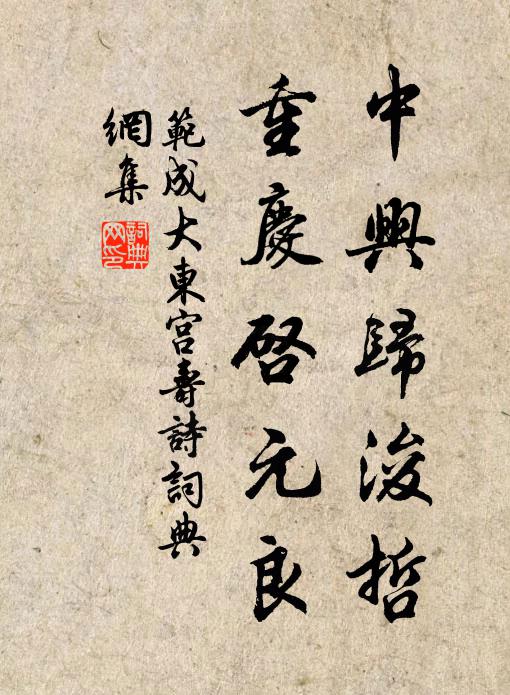 中興歸浚哲
重慶啓元良
範成大東宮壽詩詞典
網集
詞典
网印